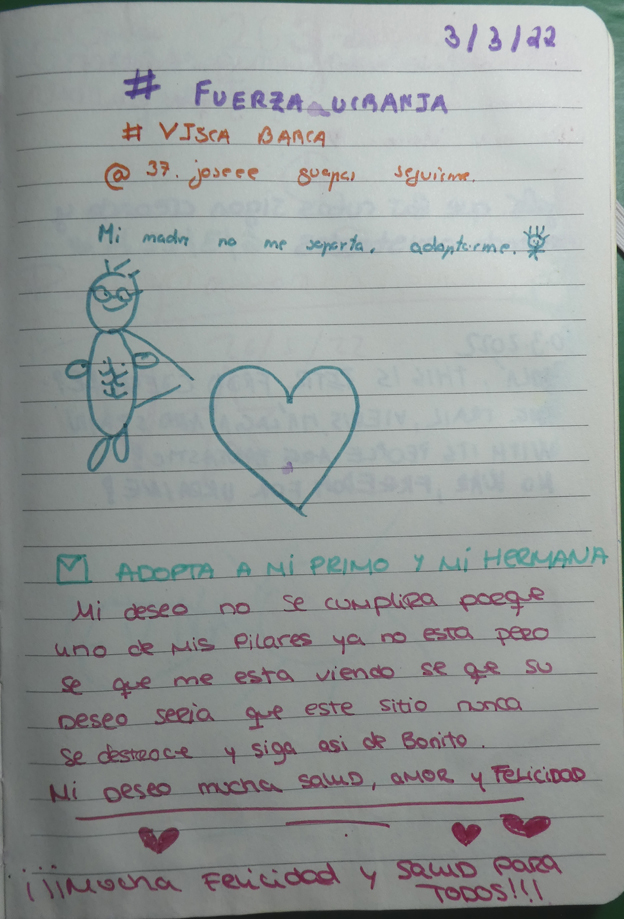 3/3/22
# FUERZA UCRANIA
# VISCA BARCA
@ 37.joseee guapas seguirme.
Mi madre no me soporta, adoptarme.
ADOPTA A MI PRIMO Y MI HERMANA
Mi deseo no se cumplira porque
uno de mis Pilares ya no esta pero
se que me esta viendo se que su
Deseo seria que este sitio nunca
se destroce y siga asi de Bonito.
Mi Deseo mucha salud, amor y Felicidad
¡¡¡Mucha Felicidad y Salud para
TODOS!!!